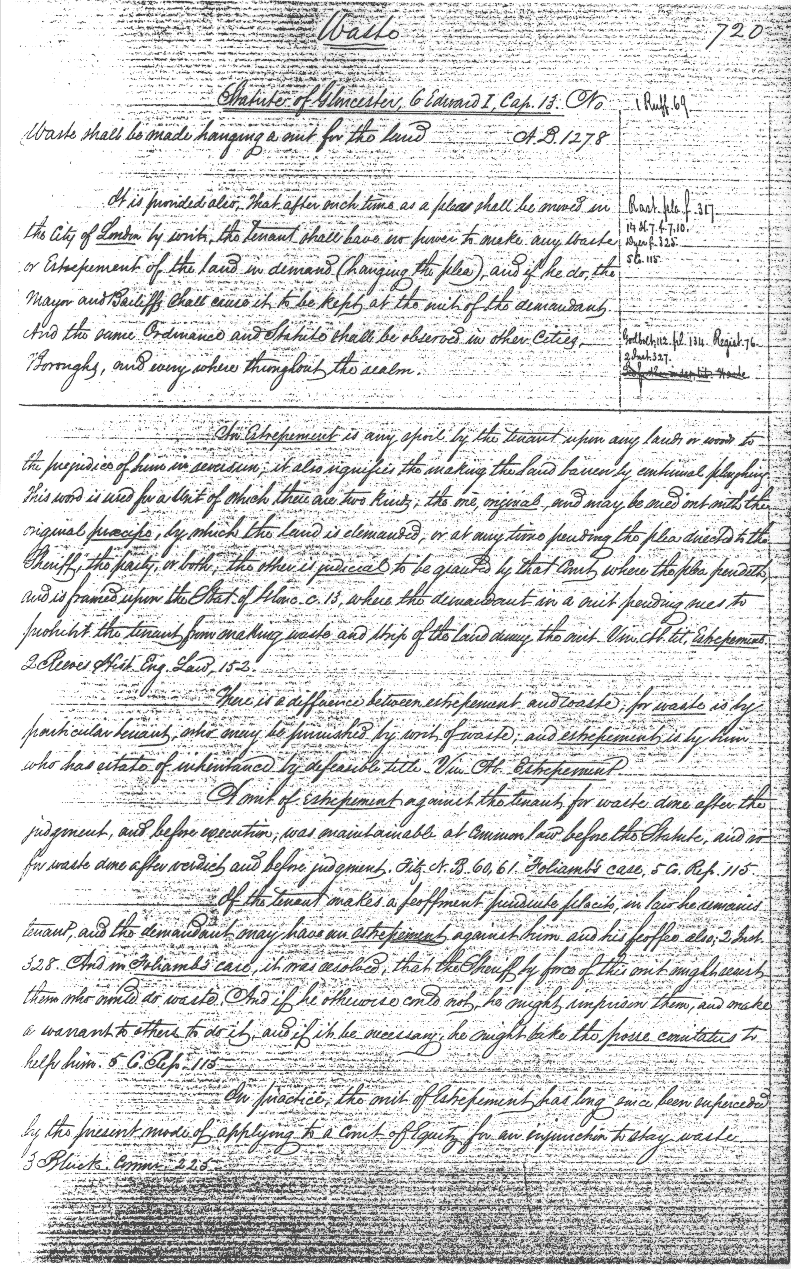 Waste
720
Statute of Gloucester, 6 Edward I, Cap. 13. No
1 Ruff. 69.
Waste shall be made hanging a suit for the land A.D. 1278
It is provided also, That after such time as a plea shall be moved in
the City of London by writ, the tenant shall have no power to make any Waste
or Estrepement of the land in demand (hanging the plea), and if he do, the
Mayor and Bailiffs shall cause it to be kept at the suit of the demandant.
And the same Ordinance and Statute shall be observed in other Cities,
Boroughs, and every where throughout the realm.
Rast. pla. f. 317.
14 H. 7. f. 7, 10.
Dyer f. 325.
5 Co. 115.
Godbolt, 112. pl. 134. Regist. 76.
2 Inst. 327.
An Estrepement is any spoil by the tenant upon any lands or woods to
the prejudice of him in reversion; it also signifies the making the land barren by continual ploughing
This word is used for a Writ of which there are two kinds; the one, original, and may be sued out with the
original præcipe, by which the land is demanded, or at any time pending the plea directed to the
Sheriff, the party, or both; the other is judicial to be granted by that Court where the plea pendeth,
and is framed upon the Stat. of Glouc. c. 13, where the demandant in a suit pending sues to
prohibit the tenant from making waste and strip of the land during the suit. Vin. Ab. tit. Estrepement.
2 Reeves Hist. Eng. Law, 152.
There is a difference between estrepement and waste, for waste is by
particular tenant, who may be punished by writ of waste, and estrepement is by him
who has estate of inheritance by defeasible title. Vin. Ab. Estrepement.
A writ of estrepement against the tenant for waste done after the
judgment, and before execution, was maintainable at Common law before the Statute, and so
for waste done after verdict and before judgment. Fitz. N. B. 60, 61. Foliamb's case, 5 Co. Rep. 115.
If the tenant makes a feoffment pendente placito, in law he remains
tenant, and the demandant may have an estrepement against him and his feoffee also; 2 Inst.
328. And in Foliamb's case, it was resolved, that the Sheriff by force of this writ might resist
them who would do waste. And if he otherwise could not, he might imprison them, and make
a warrant to others to do it, and if it be necessary, he might take the posse comitatus to
help him. 5 Co. Rep. 115
In practice, the writ of Estrepement has long since been superceded
by the present mode of applying to a Court of Equity for an injunction to stay waste
3 Black. Comm. 225.